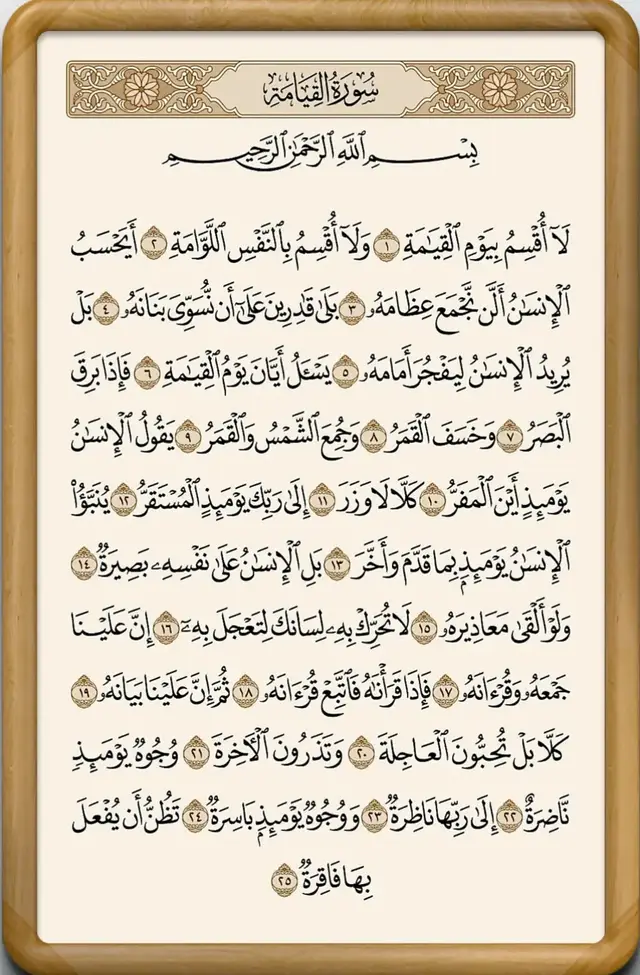 سُورَةُ القِيَامَةِ
بِسْمِ ٱللَّهِ ٱلرَّحْمَٰنِ ٱلرَّحِيمِ
لَآ أُقْسِمُ بِيَوْمِ ٱلْقِيَٰمَةِ ١ وَلَآ أُقْسِمُ بِٱلنَّفْسِ ٱللَّوَّامَةِ ٢ أَيَحْسَبُ
ٱلْإِنسَٰنُ أَلَّن نَّجْمَعَ عِظَامَهُۥ ٣ بَلَىٰ قَٰدِرِينَ عَلَىٰٓ أَن نُّسَوِّيَ بَنَانَهُۥ ٤ بَلْ
يُرِيدُ ٱلْإِنسَٰنُ لِيَفْجُرَ أَمَامَهُۥ ٥ يَسْـَٔلُ أَيَّانَ يَوْمُ ٱلْقِيَٰمَةِ ٦ فَإِذَا بَرِقَ
ٱلْبَصَرُ ٧ وَخَسَفَ ٱلْقَمَرُ ٨ وَجُمِعَ ٱلشَّمْسُ وَٱلْقَمَرُ ٩ يَقُولُ ٱلْإِنسَٰنُ
يَوْمَئِذٍ أَيْنَ ٱلْمَفَرُّ ١٠ كَلَّا لَا وَزَرَ ١١ إِلَىٰ رَبِّكَ يَوْمَئِذٍ ٱلْمُسْتَقَرُّ ١٢ يُنَبَّؤُا۟
ٱلْإِنسَٰنُ يَوْمَئِذٍۭ بِمَا قَدَّمَ وَأَخَّرَ ١٣ بَلِ ٱلْإِنسَٰنُ عَلَىٰ نَفْسِهِۦ بَصِيرَةٌ ١٤
وَلَوْ أَلْقَىٰ مَعَاذِيرَهُۥ ١٥ لَا تُحَرِّكْ بِهِۦ لِسَانَكَ لِتَعْجَلَ بِهِۦٓ ١٦ إِنَّ عَلَيْنَا
جَمْعَهُۥ وَقُرْءَانَهُۥ ١٧ فَإِذَا قَرَأْنَٰهُ فَٱتَّبِعْ قُرْءَانَهُۥ ١٨ ثُمَّ إِنَّ عَلَيْنَا بَيَانَهُۥ ١٩
كَلَّا بَلْ تُحِبُّونَ ٱلْعَاجِلَةَ ٢٠ وَتَذَرُونَ ٱلْـَٔاخِرَةَ ٢١ وُجُوهٌ يَوْمَئِذٍ
نَّاضِرَةٌ ٢٢ إِلَىٰ رَبِّهَا نَاظِرَةٌ ٢٣ وَوُجُوهٌ يَوْمَئِذٍۭ بَاسِرَةٌ ٢٤ تَظُنُّ أَن يُفْعَلَ
بِهَا فَاقِرَةٌ ٢٥